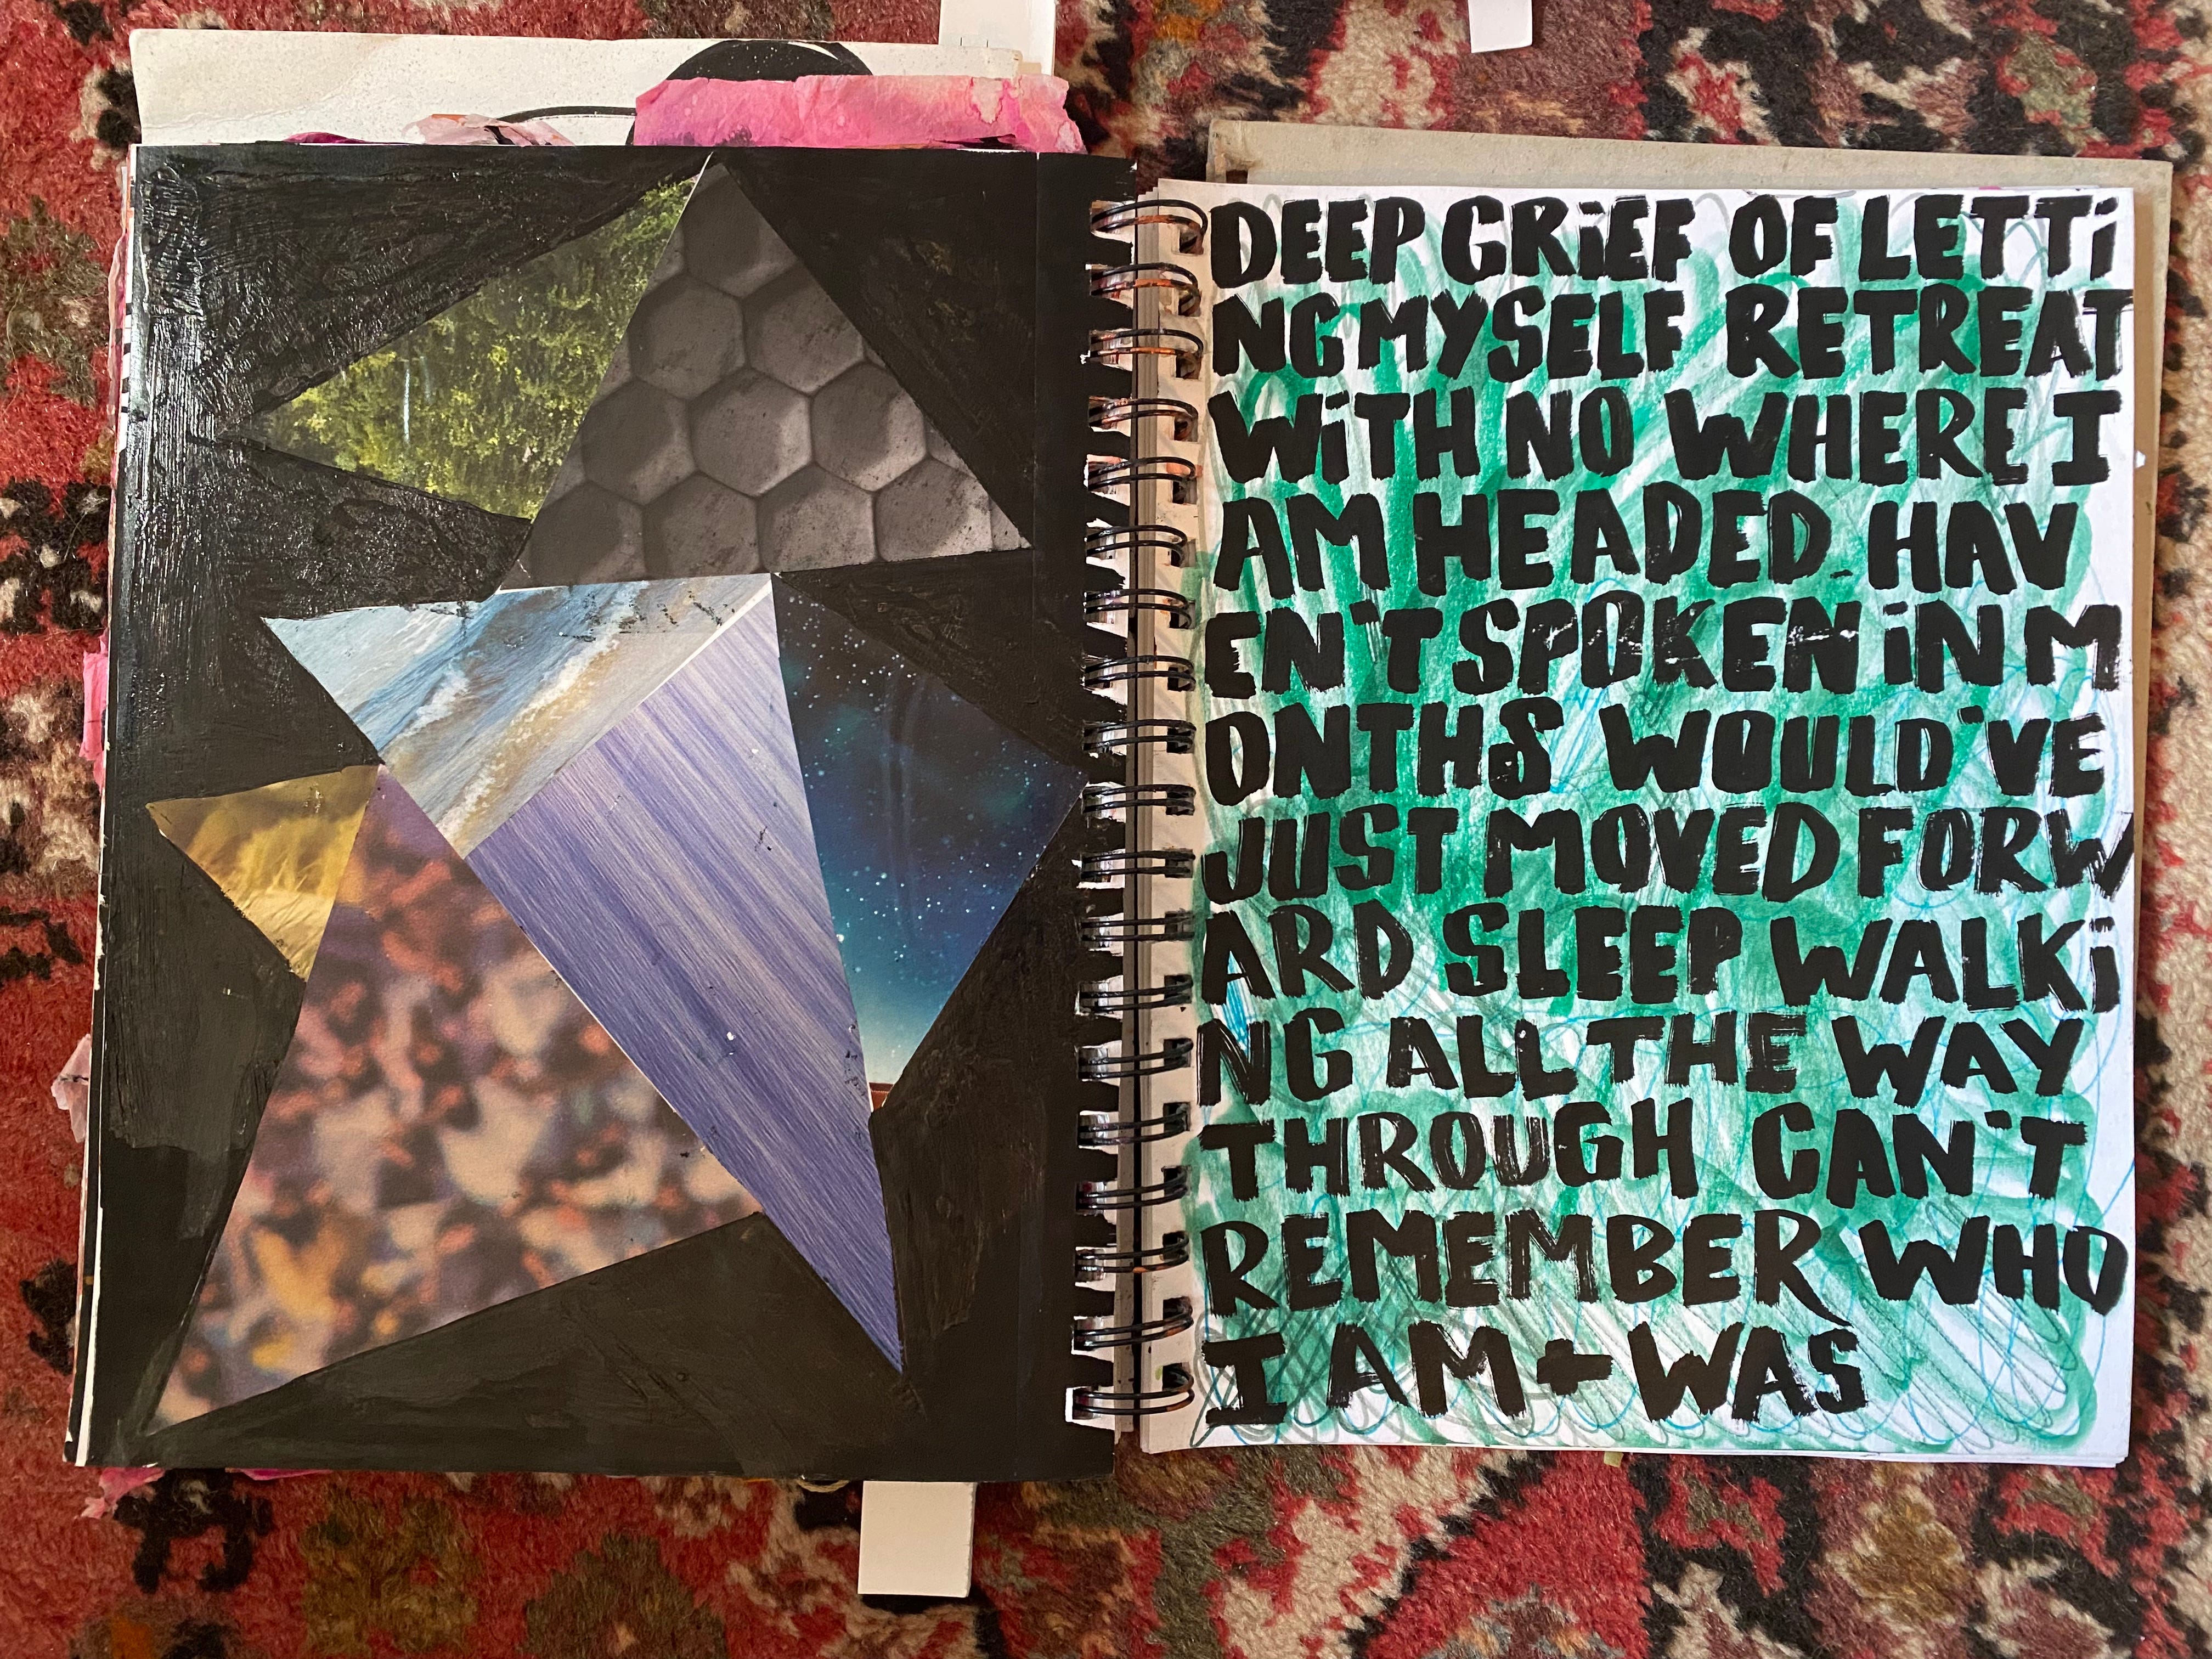 DEEP GRiEF OF LETTi
NG MYSELF RETREAT
WiTH NO WHERE I
AM HEADED. HAV
EN'T SPOKEN iN M
ONTHS WOULD'VE
JUST MOVED FORW
ARD SLEEP WALKi
NG ALL THE WAY
THROUGH CAN'T
REMEMBER WHO
I AM + WAS